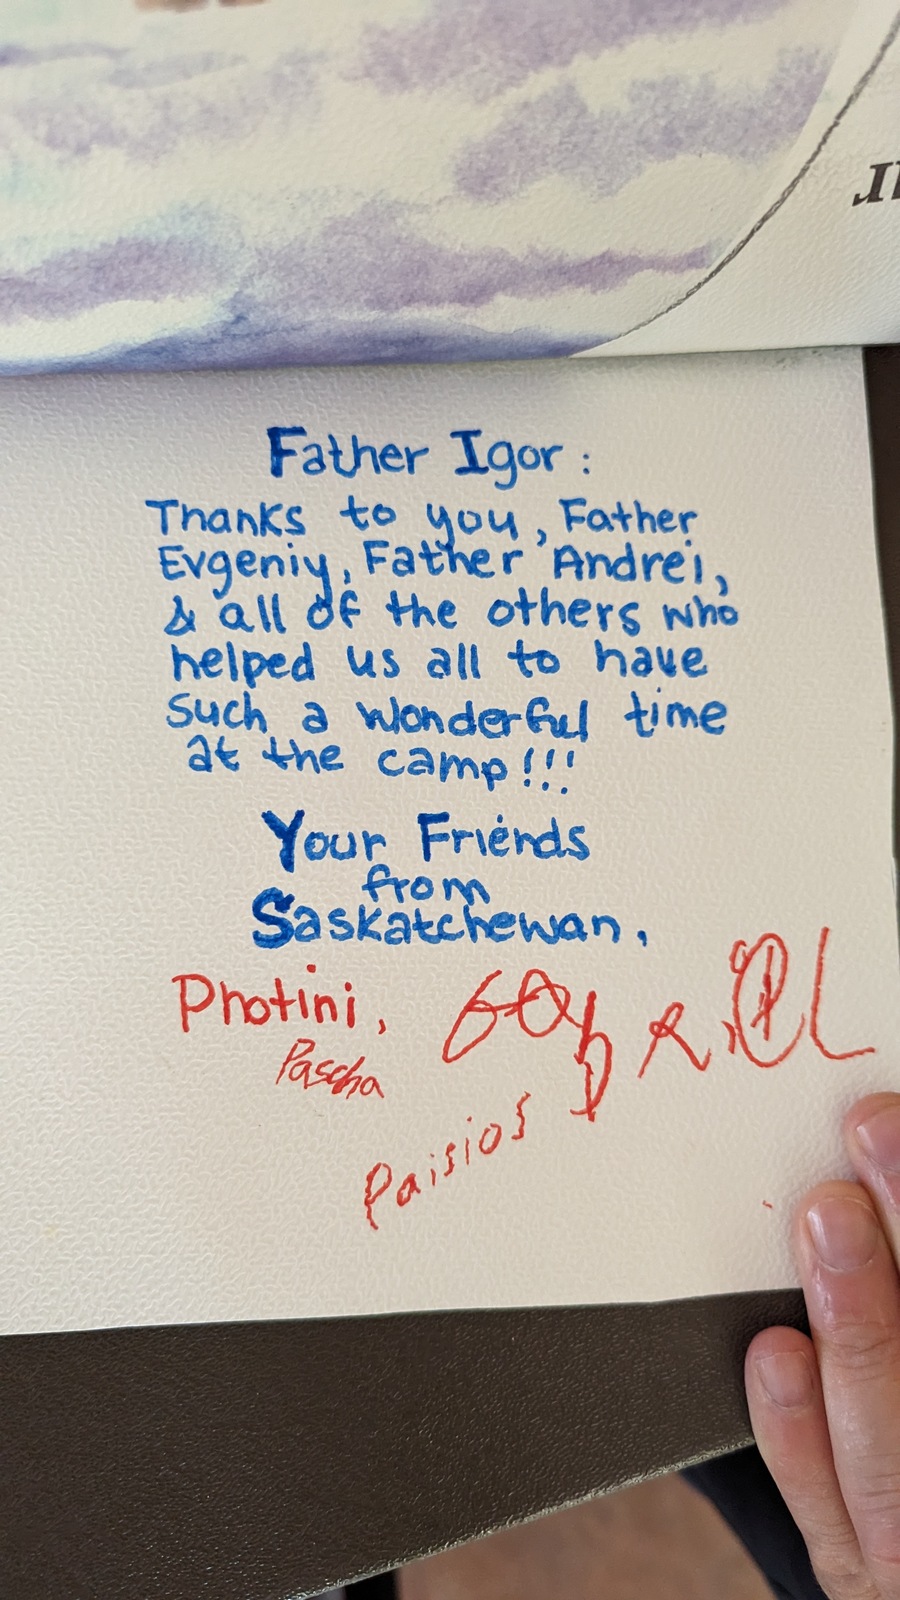 Father Igor:
Thanks to you, Father
Evgeniy, Father Andrei,
& all of the others who
helped us all to have
such a wonderful time
at the camp!!!
Your Friends
from
Saskatchewan,
Photini,
Pascha
Paisios